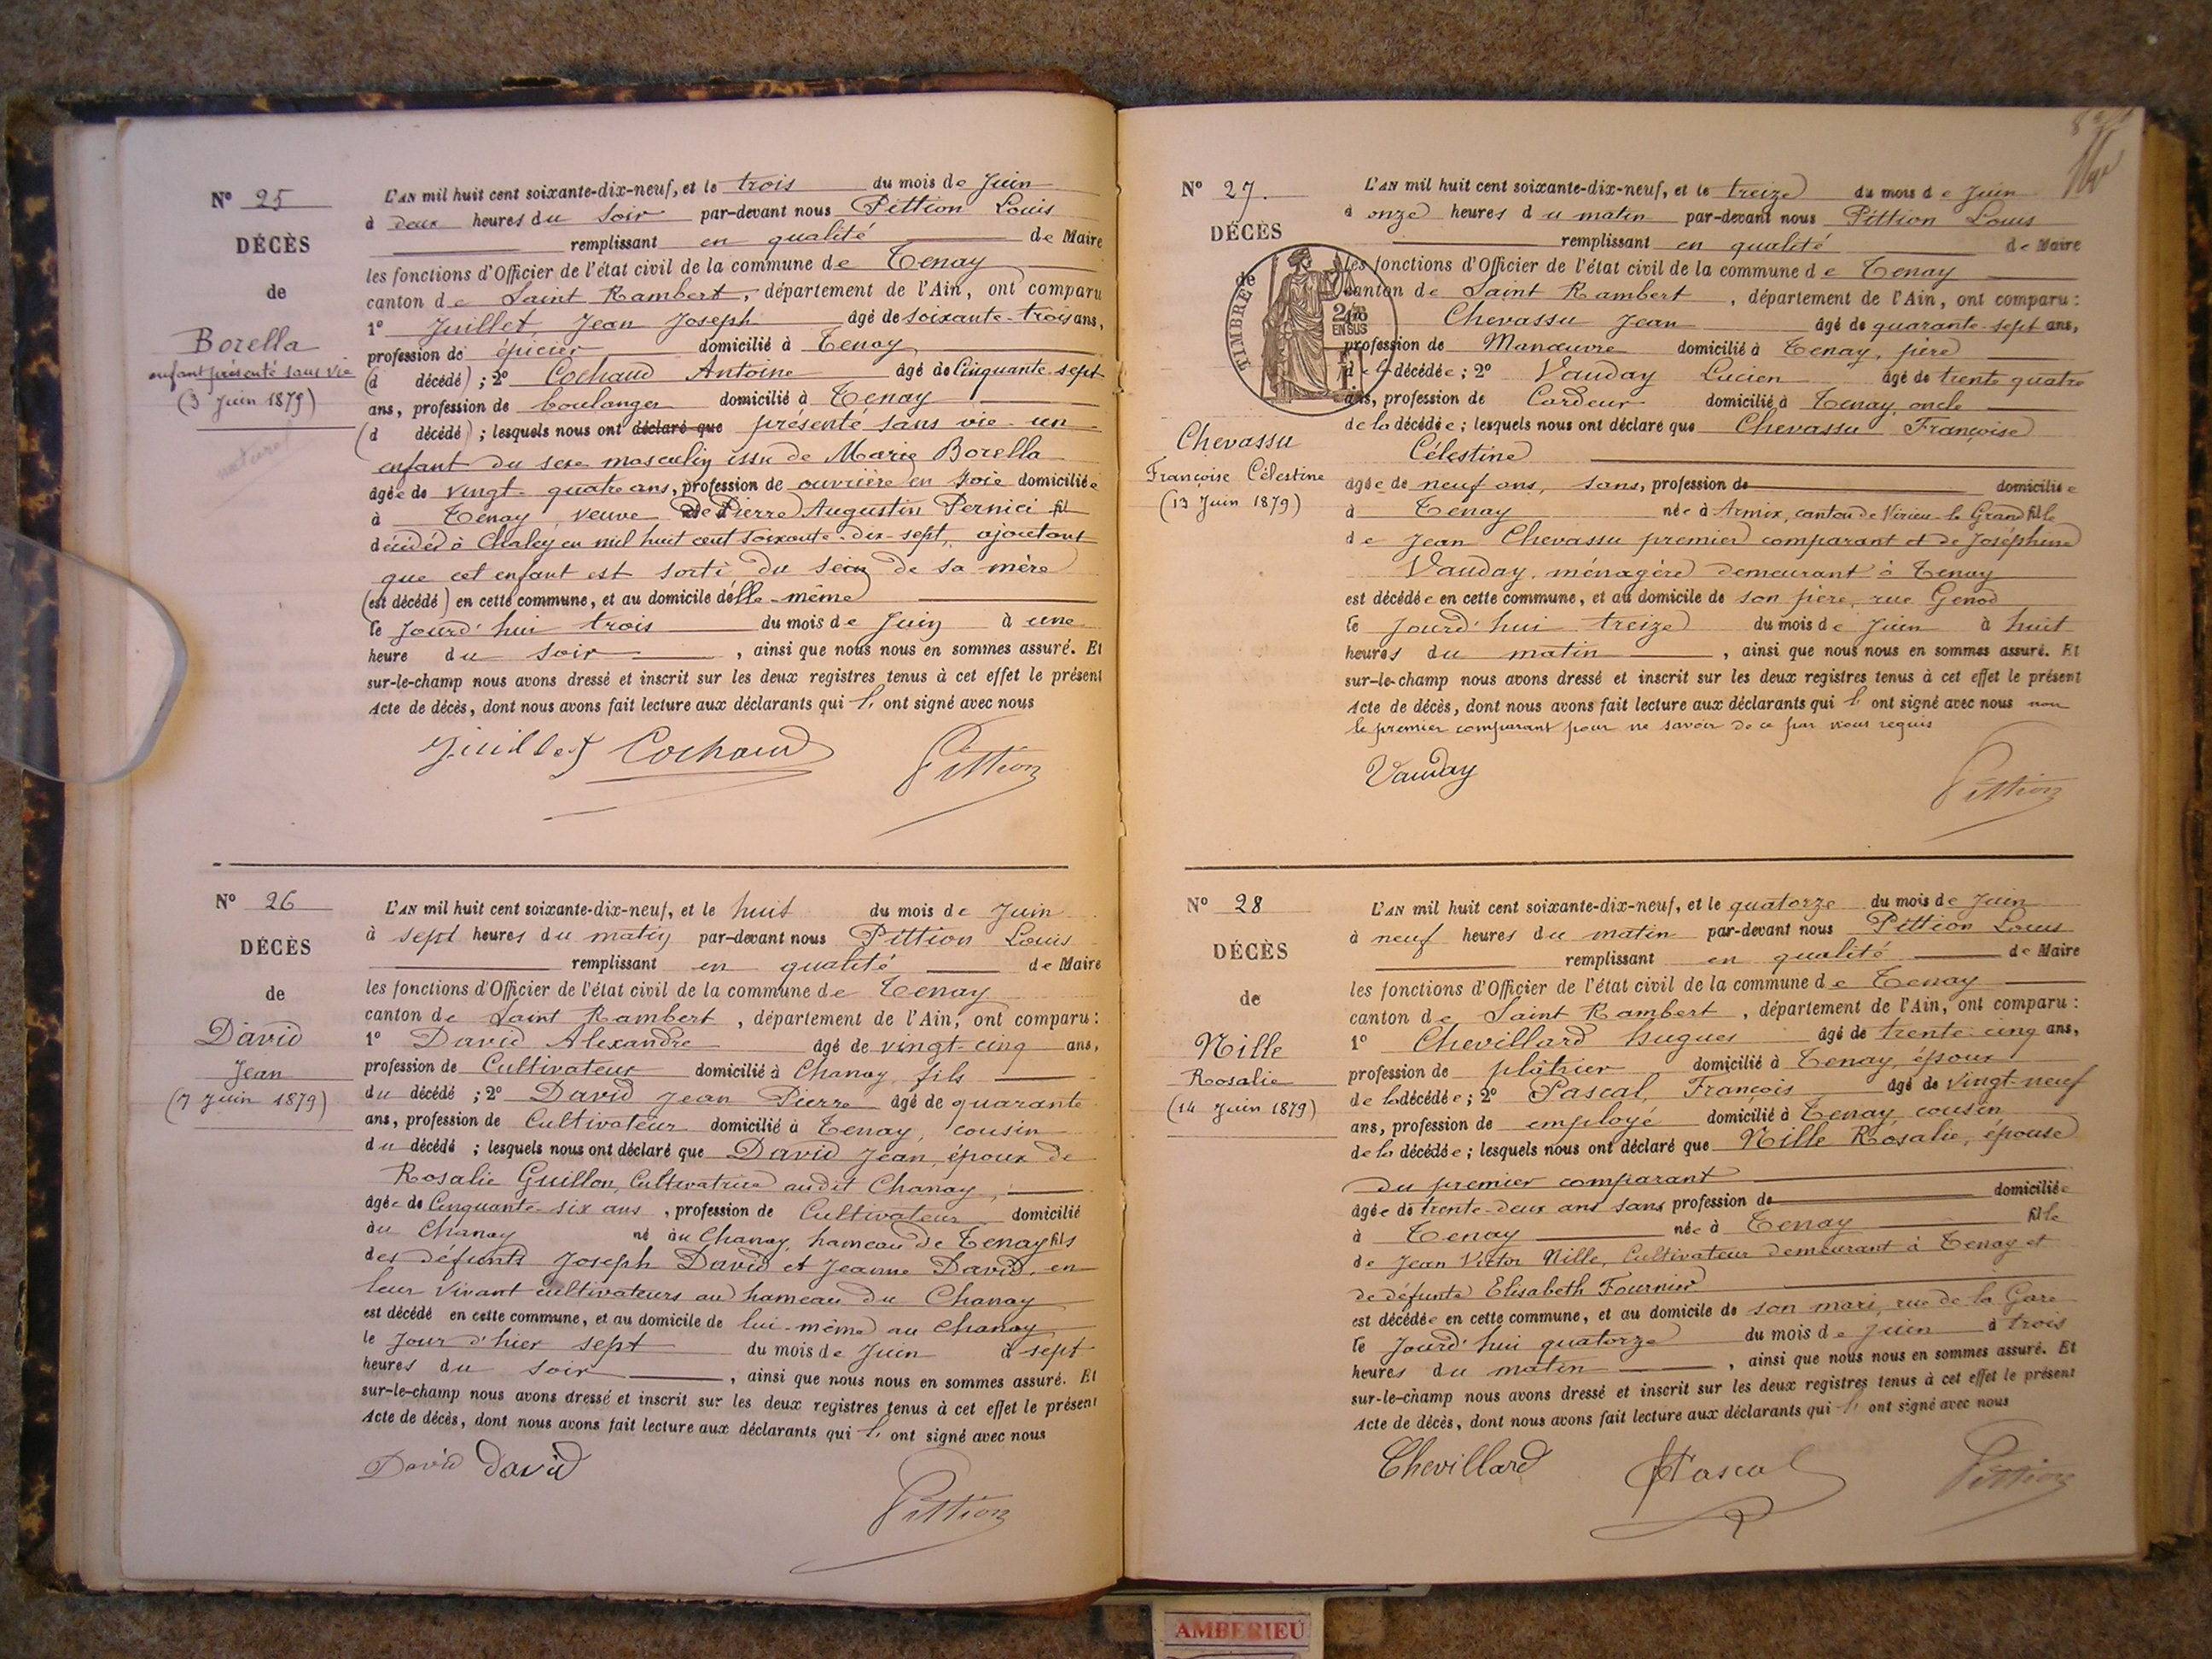 N° 25
DÉCÈS
de
Borella
enfant présenté sans vie
(3 Juin 1879)
naturel
L'AN mil huit cent soixante-dix-neuf, et le trois du mois de Juin
à deux heures du soir par-devant nous Pittion Louis
remplissant en qualité de Maire
les fonctions d'Officier de l'état civil de la commune de Tenay
canton de Saint Rambert, département de l'Ain, ont comparu
1° Juillet Jean Joseph âgé de soixante-trois ans,
profession de épicier domicilié à Tenay
(d décédé) ; 2° Cochaud Antoine âgé de Cinquante-sept
ans, profession de boulanger domicilié à Tenay
(d décédé) ; lesquels nous ont déclaré que présenté sans vie un
enfant du sexe masculin issu de Marie Borella
âgée de vingt-quatre ans, profession de ouvrière en soie domiciliée
à Tenay, veuve de Pierre Augustin Pernici fil
décédé à Chaley en mil huit cent soixante-dix-sept, ajoutant
que cet enfant est sorti du sein de sa mère
(est décédé) en cette commune, et au domicile d'elle-même
le Jourd'hui trois du mois de Juin à une
heure du soir, ainsi que nous nous en sommes assuré. Et
sur-le-champ nous avons dressé et inscrit sur les deux registres tenus à cet effet le présent
Acte de décès, dont nous avons fait lecture aux déclarants qui l' ont signé avec nous
Juillet Cochaud Pittion
N° 26
DÉCÈS
de
David
Jean
(7 Juin 1879)
L'AN mil huit cent soixante-dix-neuf, et le huit du mois de Juin
à sept heures du matin par-devant nous Pittion Louis
remplissant en qualité de Maire
les fonctions d'Officier de l'état civil de la commune de Tenay
canton de Saint Rambert, département de l'Ain, ont comparu :
1° David Alexandre âgé de vingt-cinq ans,
profession de Cultivateur domicilié à Chanay, fils
du décédé ; 2° David Jean Pierre âgé de quarante
ans, profession de Cultivateur domicilié à Tenay, cousin
du décédé ; lesquels nous ont déclaré que David Jean, époux de
Rosalie Guillon, Cultivatrice audit Chanay,
âgée de Cinquante-six ans, profession de Cultivateur domicilié
au Chanay né au Chanay, hameau de Tenay fils
des défunts Joseph David et Jeanne David, en
leur vivant cultivateurs au hameau du Chanay
est décédé en cette commune, et au domicile de lui-même au Chanay
le Jour d'hier sept du mois de Juin à sept
heures du soir, ainsi que nous nous en sommes assuré. Et
sur-le-champ nous avons dressé et inscrit sur les deux registres tenus à cet effet le présent
Acte de décès, dont nous avons fait lecture aux déclarants qui l' ont signé avec nous
David David
Pittion
N° 27.
DÉCÈS
de
TIMBRE
2/10 EN SUS
Chevassu
Françoise Célestine
(13 Juin 1879)
L'AN mil huit cent soixante-dix-neuf, et le treize du mois de Juin
à onze heures du matin par-devant nous Pittion Louis
remplissant en qualité de Maire
les fonctions d'Officier de l'état civil de la commune de Tenay
canton de Saint Rambert, département de l'Ain, ont comparu :
Chevassu Jean âgé de quarante-sept ans,
profession de Manœuvre domicilié à Tenay, père
de la décédée ; 2° Vauday Lucien âgé de trente quatre
ans, profession de Cardeur domicilié à Tenay, oncle
de la décédée ; lesquels nous ont déclaré que Chevassu Françoise
Célestine
âgée de neuf ans, sans, profession de domiciliée
à Tenay née à Armix, canton de Virieu-le-Grand fille
de Jean Chevassu premier comparant et de Joséphine
Vauday, ménagère demeurant à Tenay
est décédée en cette commune, et au domicile de son père, rue Genod
le Jourd'hui treize du mois de Juin à huit
heures du matin, ainsi que nous nous en sommes assuré. Et
sur-le-champ nous avons dressé et inscrit sur les deux registres tenus à cet effet le présent
Acte de décès, dont nous avons fait lecture aux déclarants qui l' ont signé avec nous non
le premier comparant pour ne savoir de ce par nous requis
Vauday
Pittion
N° 28
DÉCÈS
de
Nille
Rosalie
(14 Juin 1879)
L'AN mil huit cent soixante-dix-neuf, et le quatorze du mois de Juin
à neuf heures du matin par-devant nous Pittion Louis
remplissant en qualité de Maire
les fonctions d'Officier de l'état civil de la commune de Tenay
canton de Saint Rambert, département de l'Ain, ont comparu :
1° Chevillard Hugues âgé de trente-cinq ans,
profession de plâtrier domicilié à Tenay, époux
de la décédée ; 2° Pascal, François âgé de vingt-neuf
ans, profession de employé domicilié à Tenay, cousin
de la décédée ; lesquels nous ont déclaré que Nille Rosalie, épouse
du premier comparant
âgée de trente-deux ans sans profession de domiciliée
à Tenay née à Tenay fille
de Jean Victor Nille, Cultivateur demeurant à Tenay et
de défunte Elisabeth Fournier
est décédée en cette commune, et au domicile de son mari, rue de la Gare
le Jourd'hui quatorze du mois de Juin à trois
heures du matin, ainsi que nous nous en sommes assuré. Et
sur-le-champ nous avons dressé et inscrit sur les deux registres tenus à cet effet le présent
Acte de décès, dont nous avons fait lecture aux déclarants qui l' ont signé avec nous
Chevillard Pascal Pittion
AMBERIEU